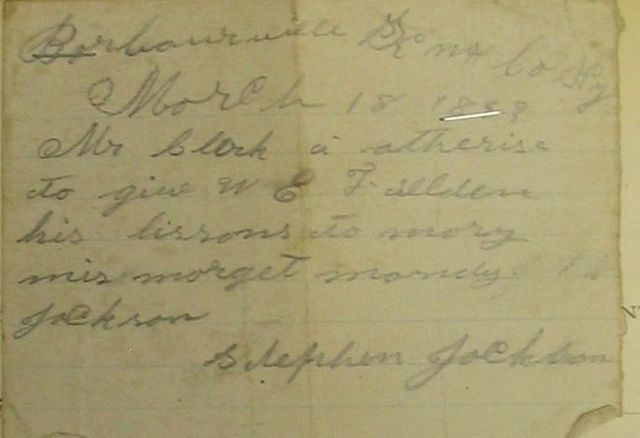 Barbourville Knox Co Ky
March 18 1898
Mr Clark i atherise
to give W E Fielden
his lissons to mary
mis morget mandy
Jackson
Stephen Jackson